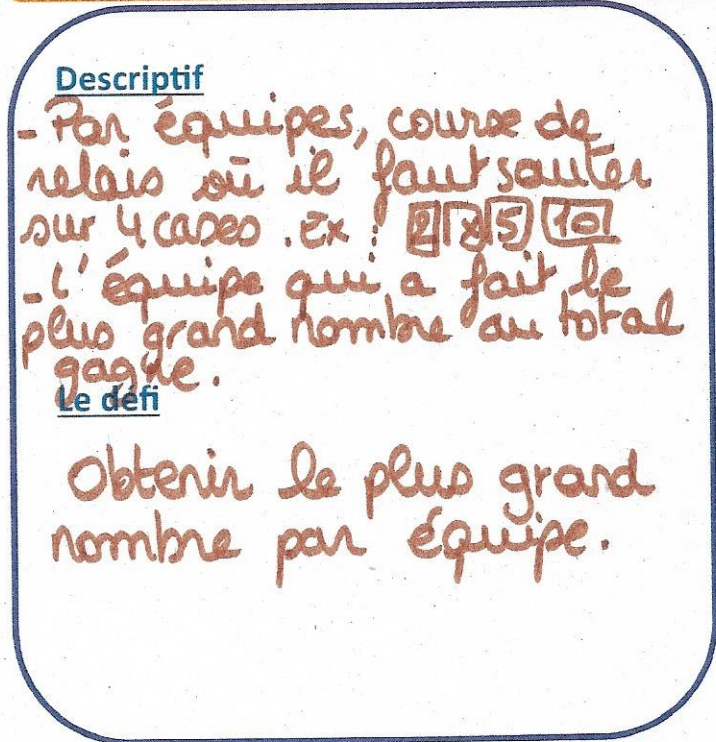 Descriptif
- Par équipes, course de
relais où il faut sauter
sur 4 cases. Ex : 2 x 5 10
- L'équipe qui a fait le
plus grand nombre au total
gagne.
Le défi
Obtenir le plus grand
nombre par équipe.